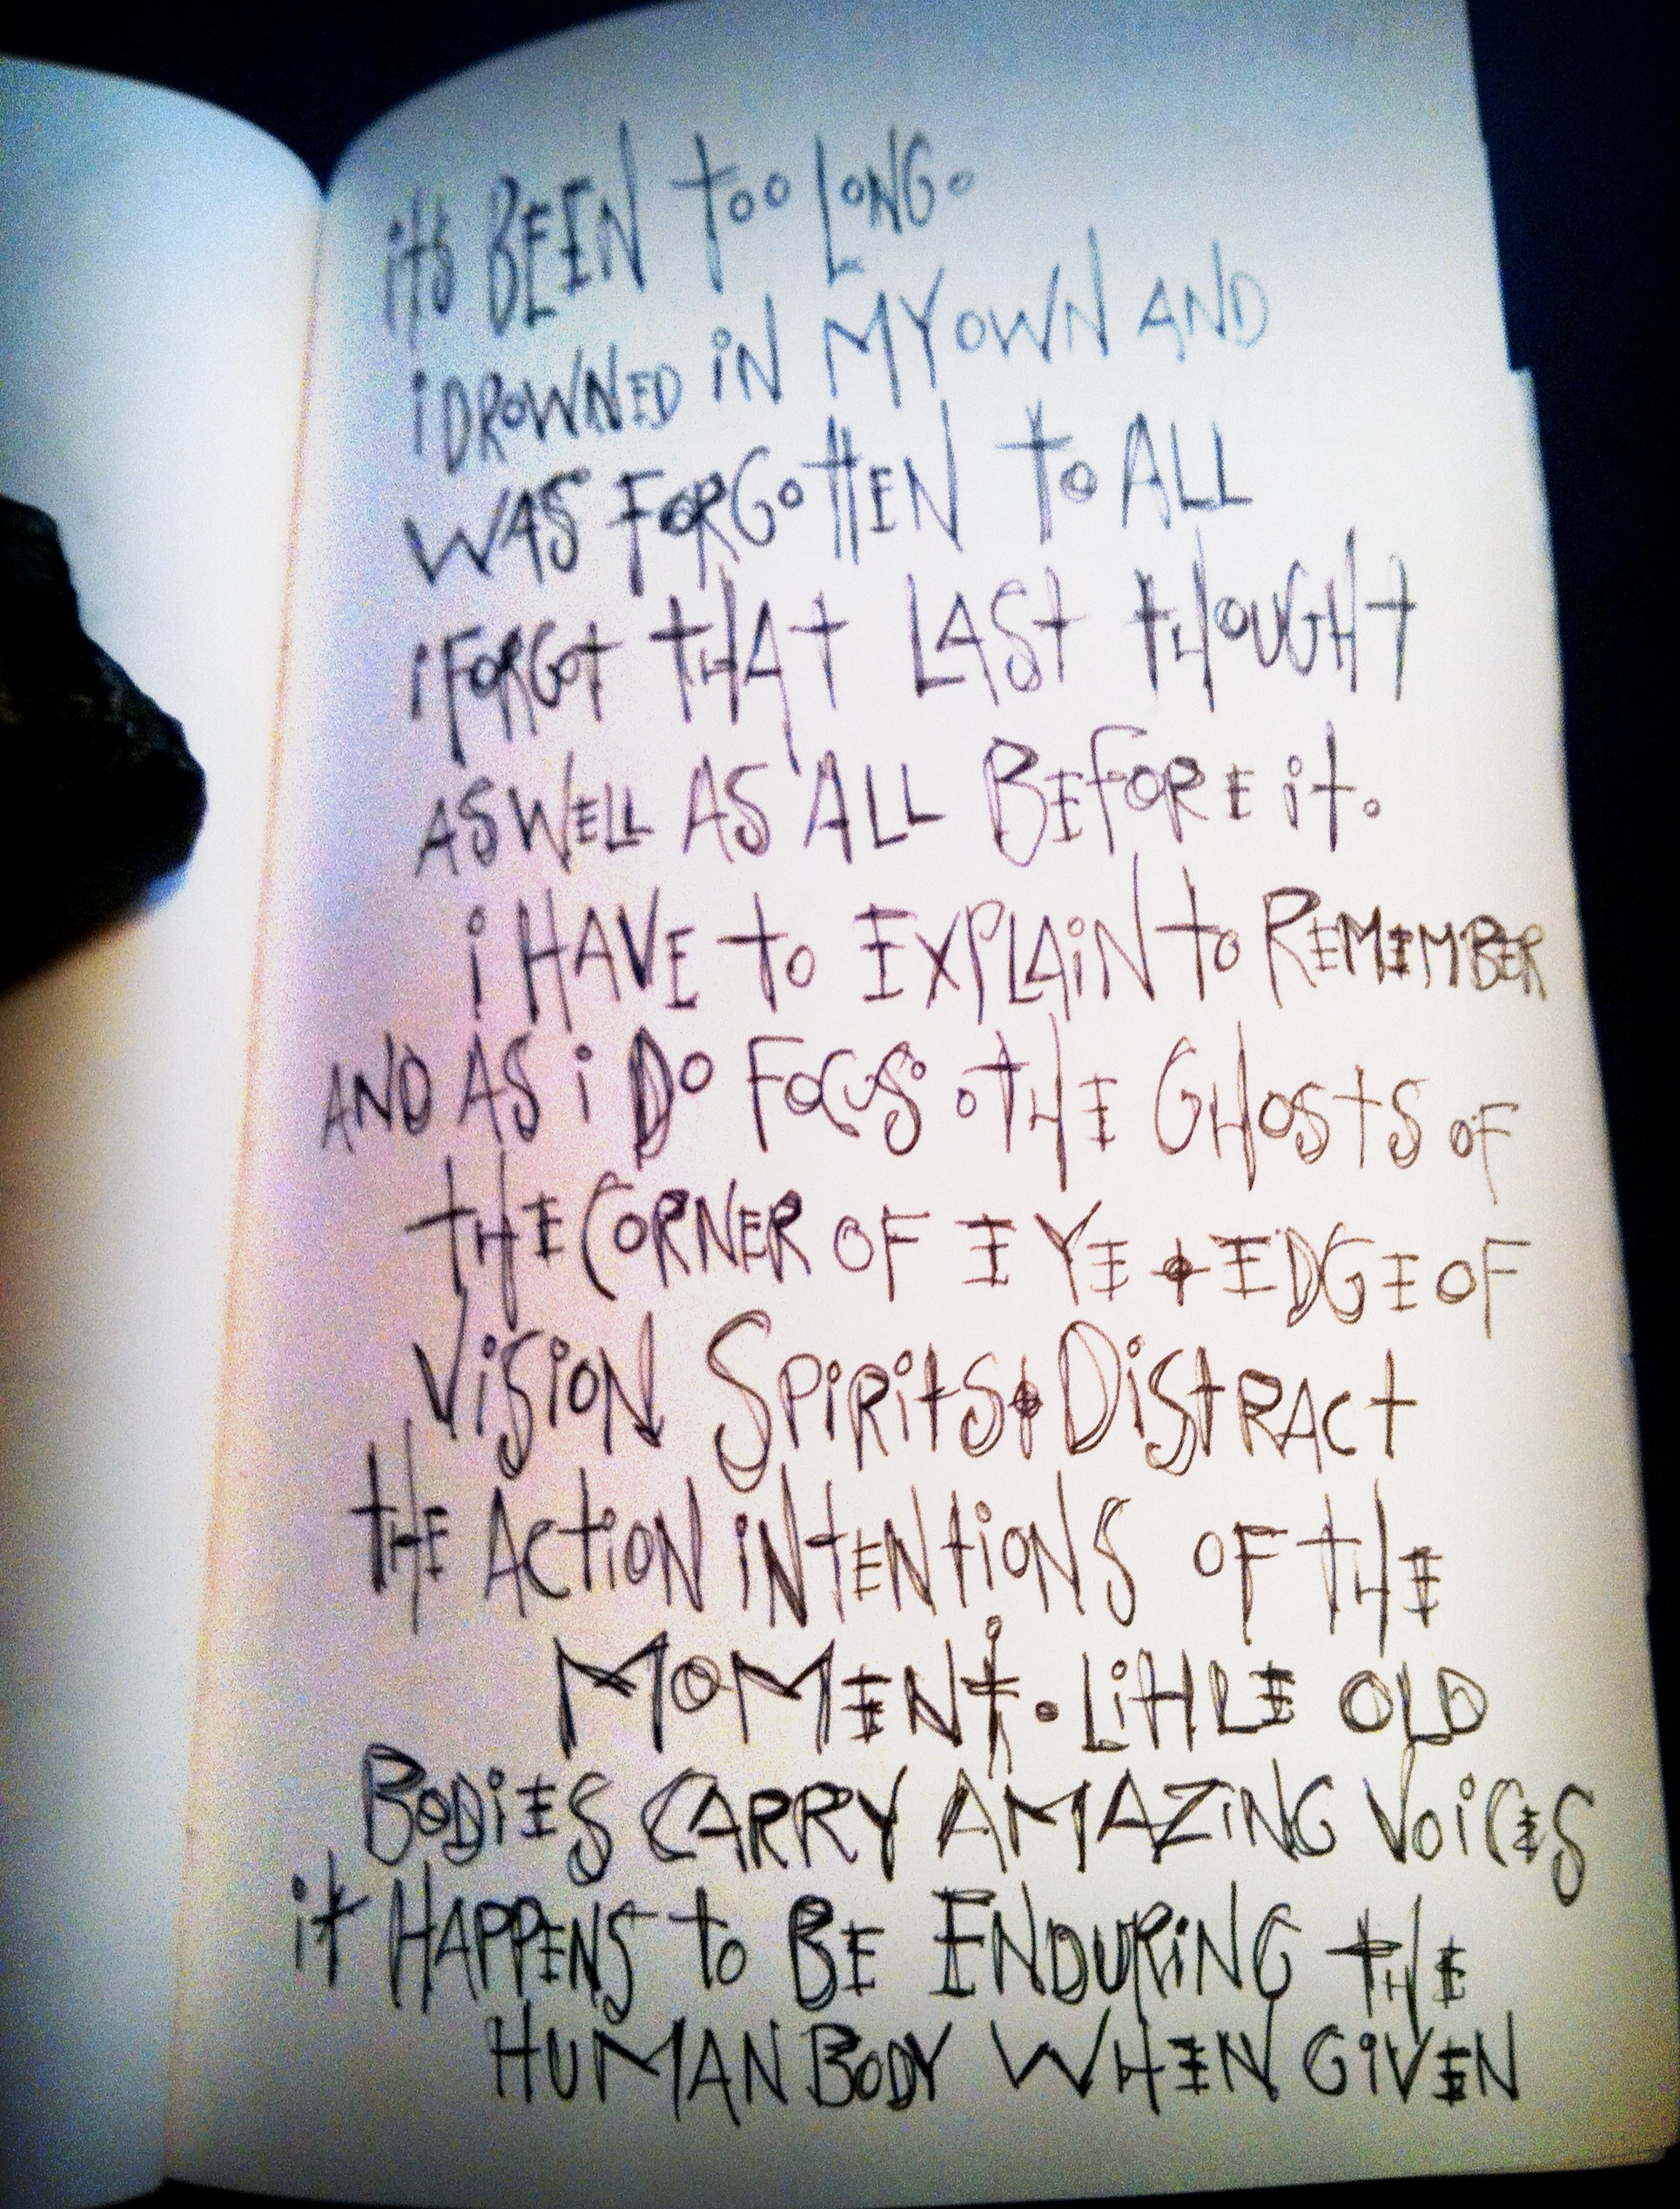 itS BEEN too LONG.
i DROWNED iN MY OWN AND
WAS FORGOttEN to ALL
i FORGOt tHAt LASt tHOUGHt
AS WELL AS ALL BEFORE it.
i HAVE to EXPLAiN to REMEMBER
AND AS i DO FOCUS . tHE GHOStS OF
tHE CORNER OF EYE + EDGE OF
ViSiON SPiRitS + DiStRACt
tHE ACtiON iNtENtiONS OF tHE
MOMENt. LittLE OLD
BODiES CARRY AMAZiNG VOiCES
it HAPPENS to BE ENDURiNG tHE
HUMAN BODY WHEN GiVEN